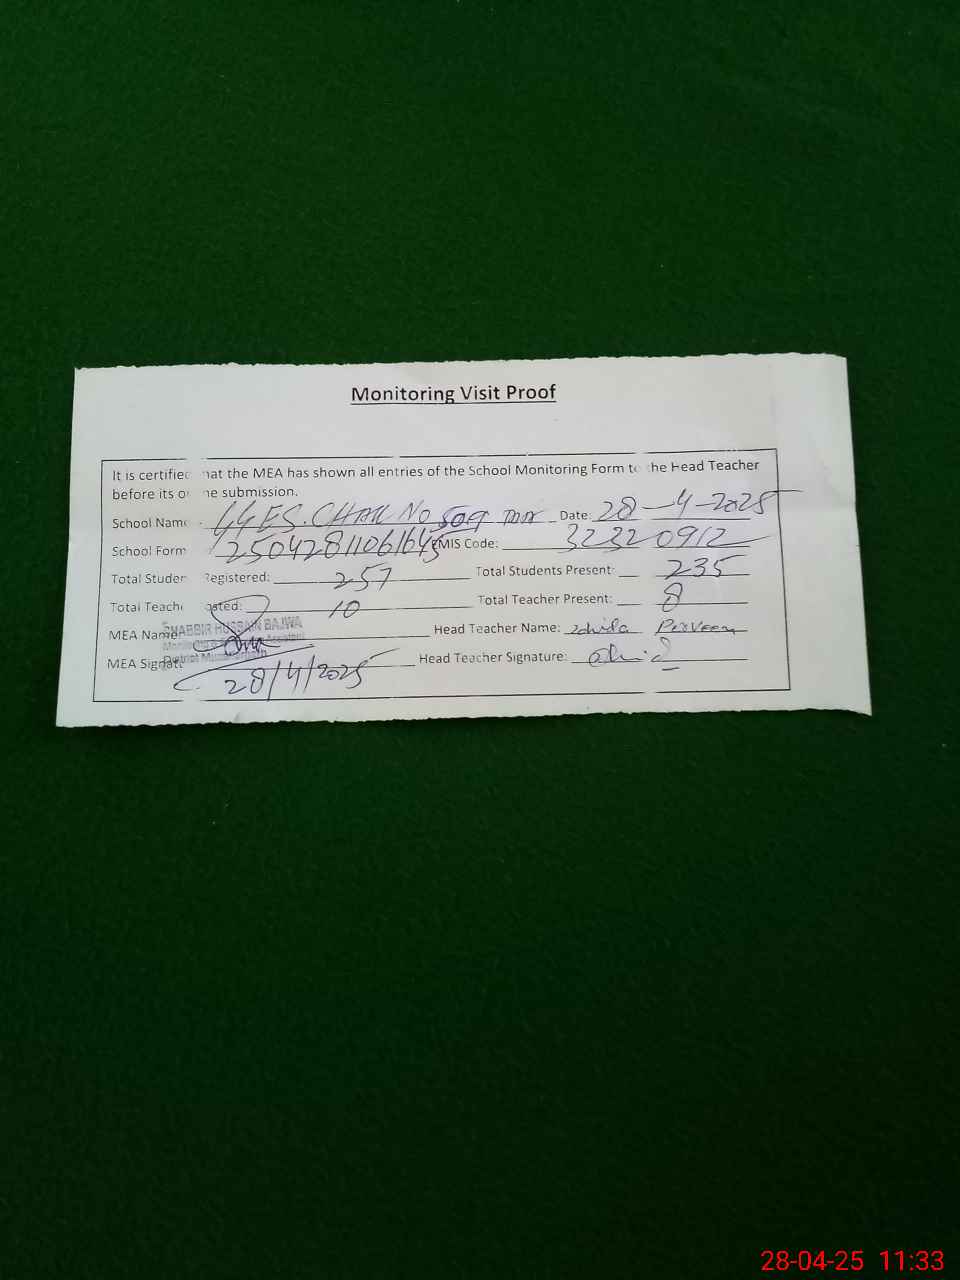 Monitoring Visit Proof
It is certified that the MEA has shown all entries of the School Monitoring Form to the Head Teacher
before its o ne submission.
School Name GGES. CHAK NO 509 TDA Date: 28-4-2025
School Form 25042811061645 EMIS Code: 32320912
Total Studen Registered: 257 Total Students Present: 235
Total Teach osted: 10 Total Teacher Present: 8
MEA Name SHABBIR HUSSAIN BAJWA Head Teacher Name: Zahida Parveen
Monitoring Assistant
District
MEA Signat Head Teacher Signature:
28/4/2025
28-04-25 11:33